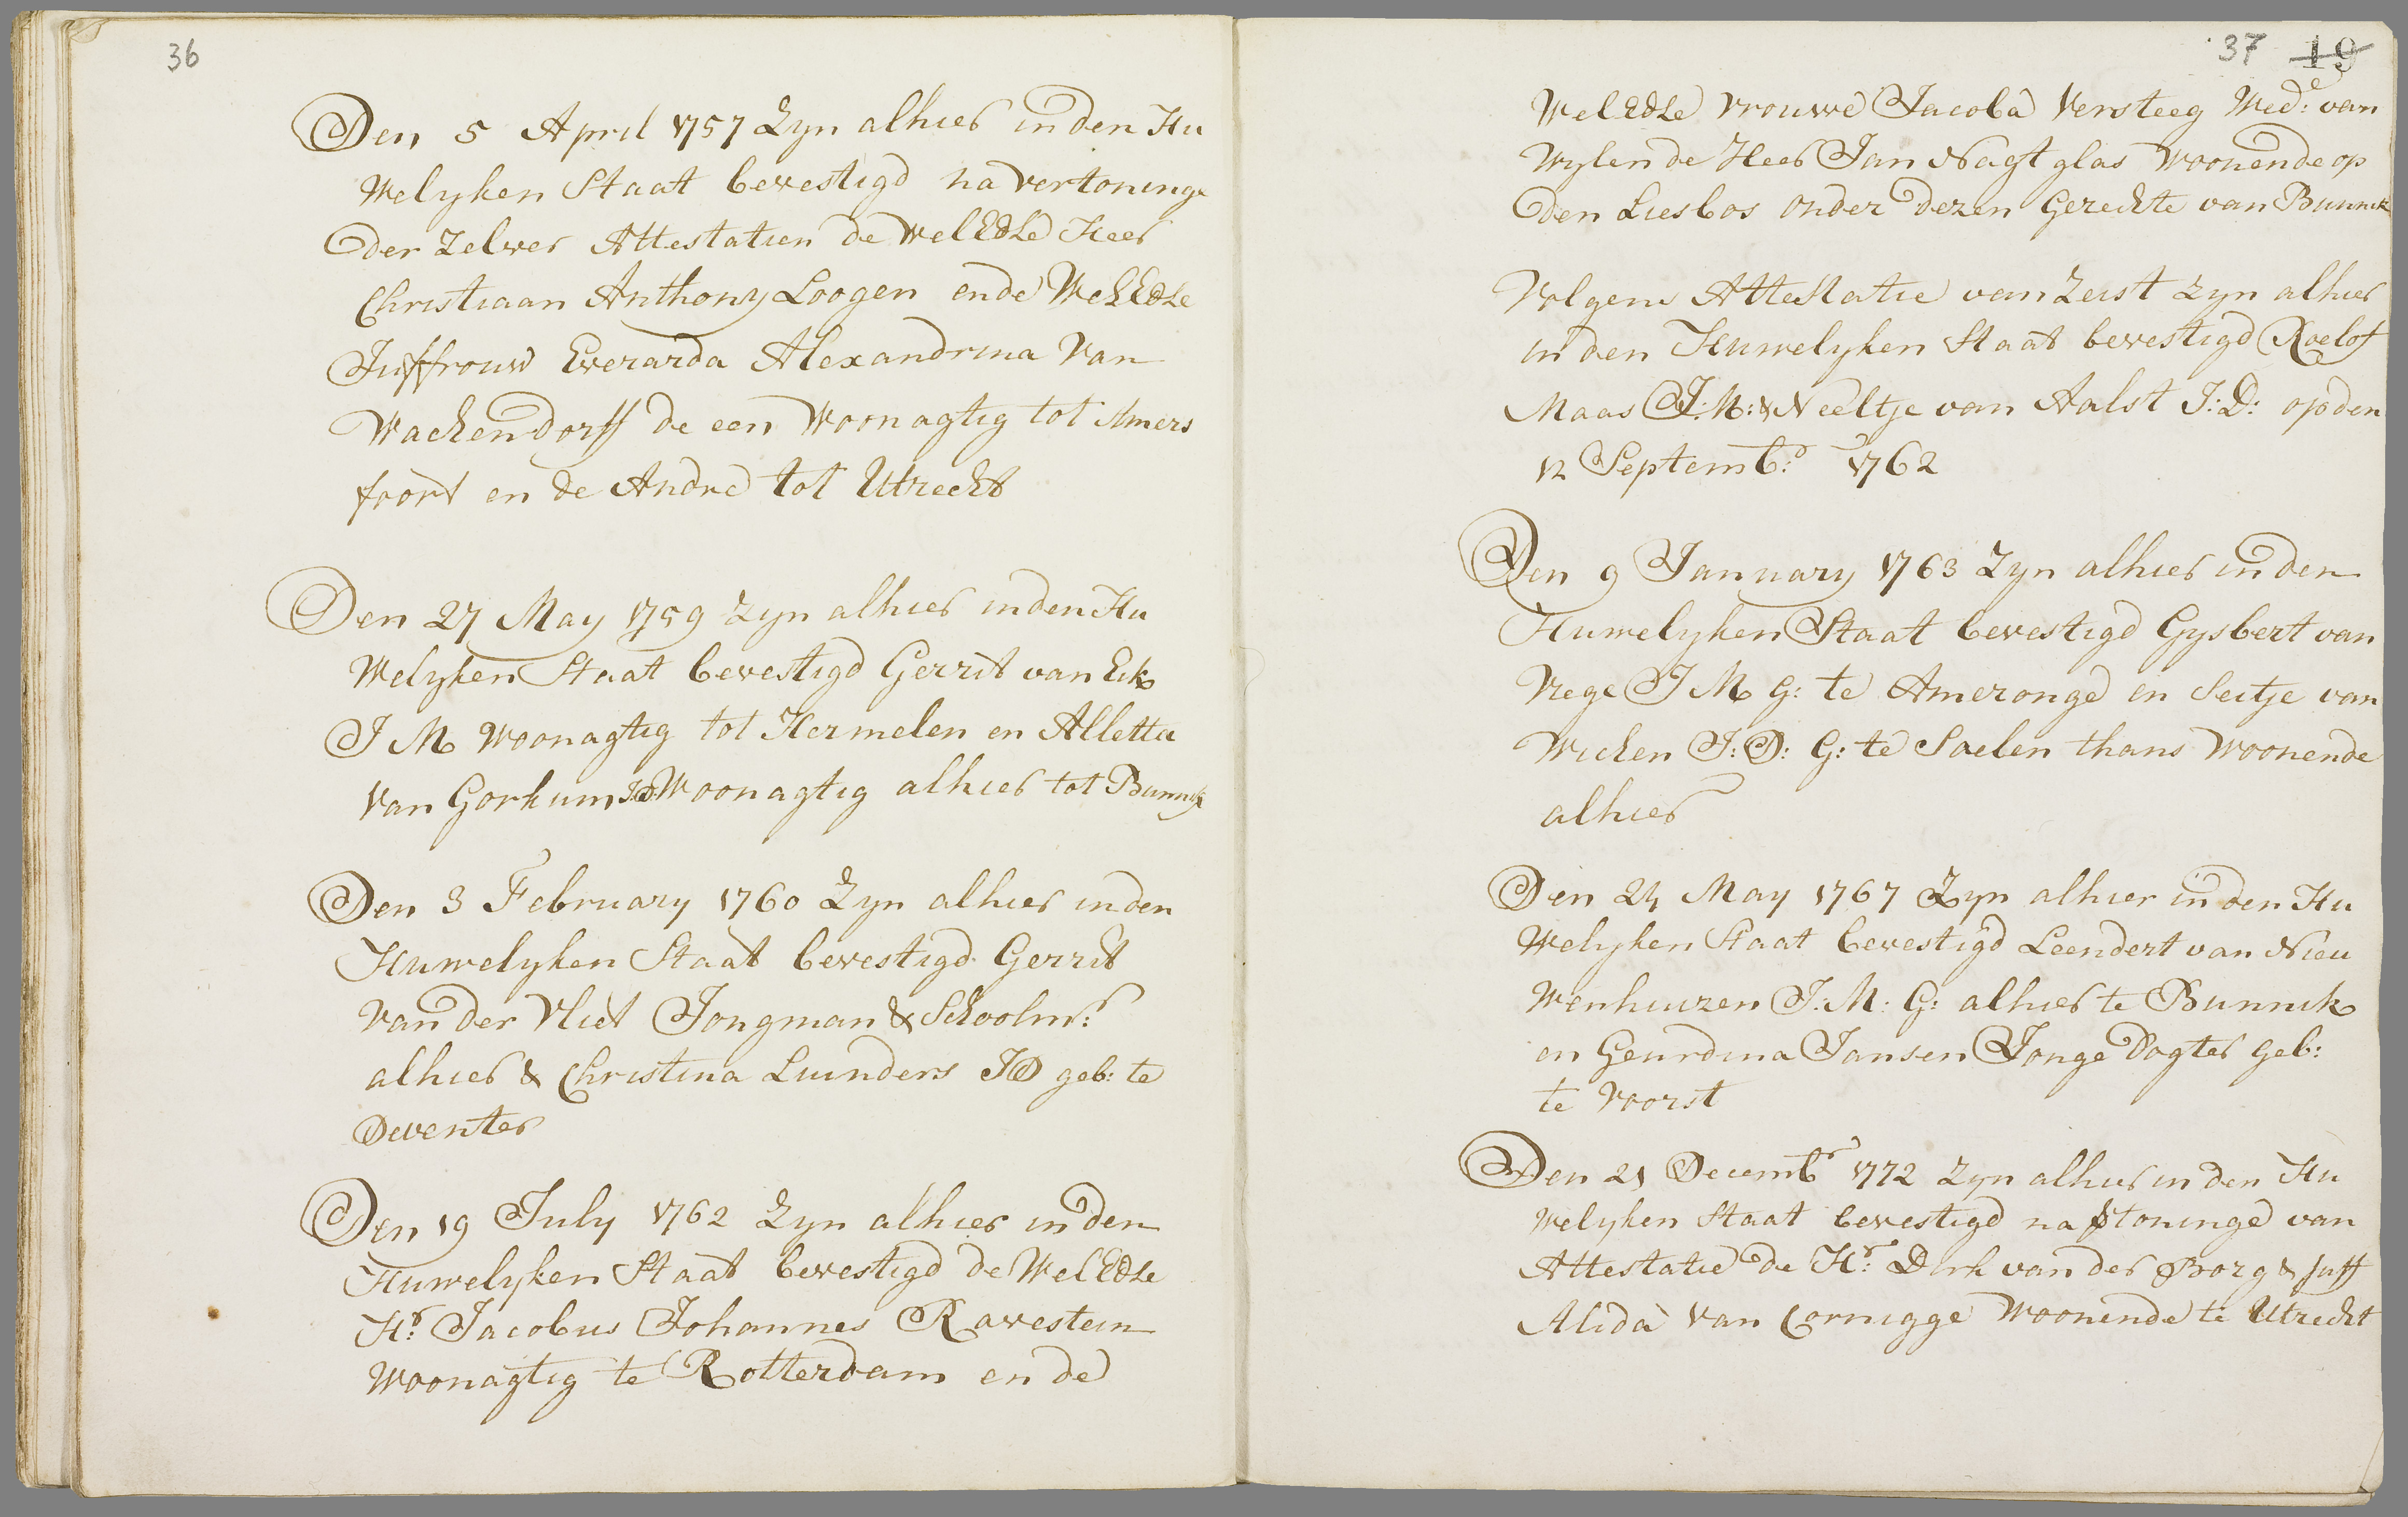 36
Den 5 April 1757 Zyn alhier in den Hu
Welyken Staat bevestigd na vertoninge
der Zelver Attestatien de WelEdle Heer
Christiaan Anthony Loogen ende WelEdle
Juffrouw Everarda Alexandrina Van
Wachendorff de een Woonagtig tot Amers
foort en de Andre tot Utrecht
Den 27 May 1759 zyn alhier in den Hu
Welyken Staat bevestigd Gerrit van Eik
J M woonagtig tot Hermelen en Alletta
Van Gorkum JD Woonagtig alhier tot Bunnik
Den 3 February 1760 Zyn alhier in den
Huwelyken Staat bevestigd Gerrit
van der Vliet Jongman & Schoolmr:
alhier & Christina Luinders JD geb: te
Deventer
Den 19 July 1762 Zyn alhier in den
Huwelyken Staat bevestigd de WelEdle
Hr: Jacobus Johannes Ravestein
Woonagtig te Rotterdam en de
37 19
WelEdle Vrouwe Jacoba Versteeg Wede: van
Wylen de Heer Jan Nagtglas Woonende op
den Liesbos onder dezen Gerechte van Bunnik
Volgens Attestatie van Zeist zyn alhier
in den Huwelyken Staat bevestigd Roelof
Maas J:M: & Neeltje van Aalst J:D: op den
12 Septembr: 1762
Den 9 January 1763 Zyn alhier in den
Huwelyken Staat bevestigd Gysbert van
Vrege J M G: te Ameronge en Seitje van
Wichen J:D: G: te Soelen thans Woonende
alhier
Den 24 May 1767 Zyn alhier in den Hu
Welyken Staat bevestigd Leendert van Nieu
Wenhuizen J:M: G: alhier te Bunnik
en Geurdina Jansen Jonge Dogter geb:
te Voorst
Den 21 Decembr 1772 Zyn alhier in den Hu
welyken Staat bevestigd na toninge van
Attestatie de Hr: Dirk van der Borg & Juff
Alida van Cornigge Woonende te Utrecht